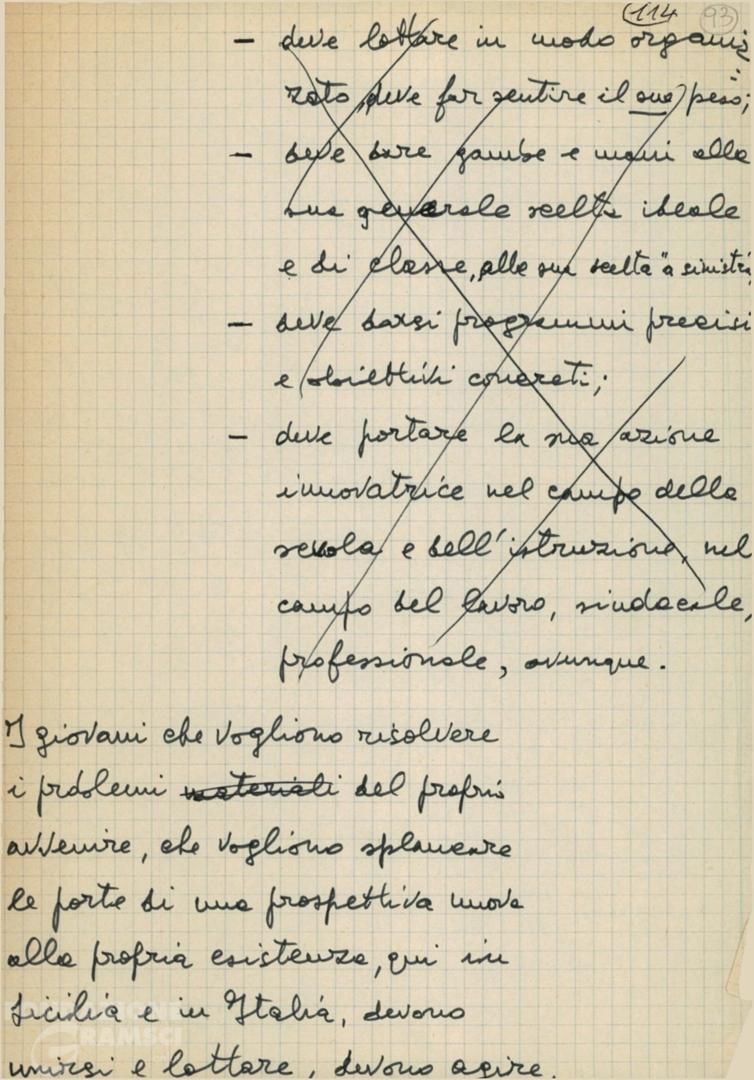 114 93
– deve lottare in modo organiz
zato, deve far sentire il suo peso;
– deve dare gambe e mani alla
sua generale scelta ideale
e di classe, alla sua scelta "a sinistra"
– deve darsi programmi precisi
e obiettivi concreti;
– deve portare la sua azione
innovatrice nel campo della
scuola e dell'istruzione, nel
campo del lavoro, sindacale,
professionale, ovunque.
I giovani che vogliono risolvere
i problemi materiali del proprio
avvenire, che vogliono splancare
le porte di una prospettiva nuova
alla propria esistenza, qui in
Sicilia e in Italia, devono
unirsi e lottare, devono agire.
FONDAZIONE
GRAMSCI